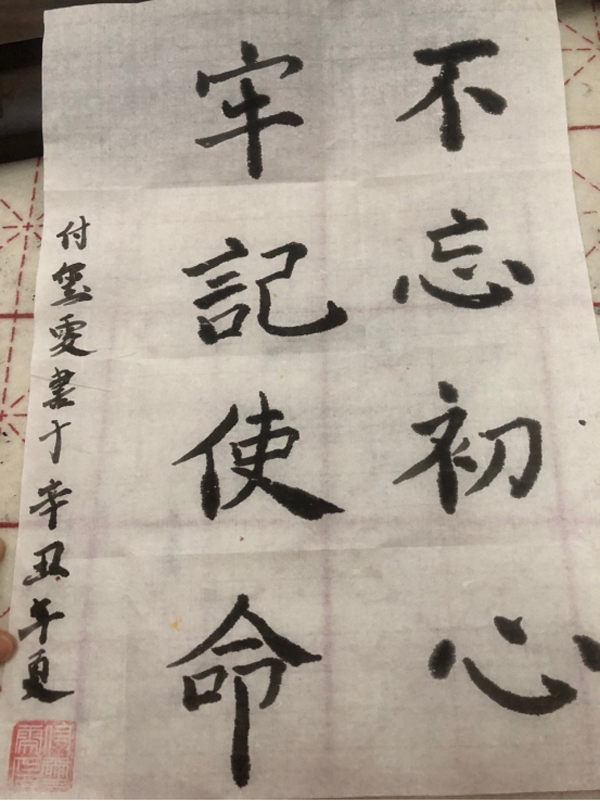 不忘初心
牢記使命
付玺雯書于辛丑年夏